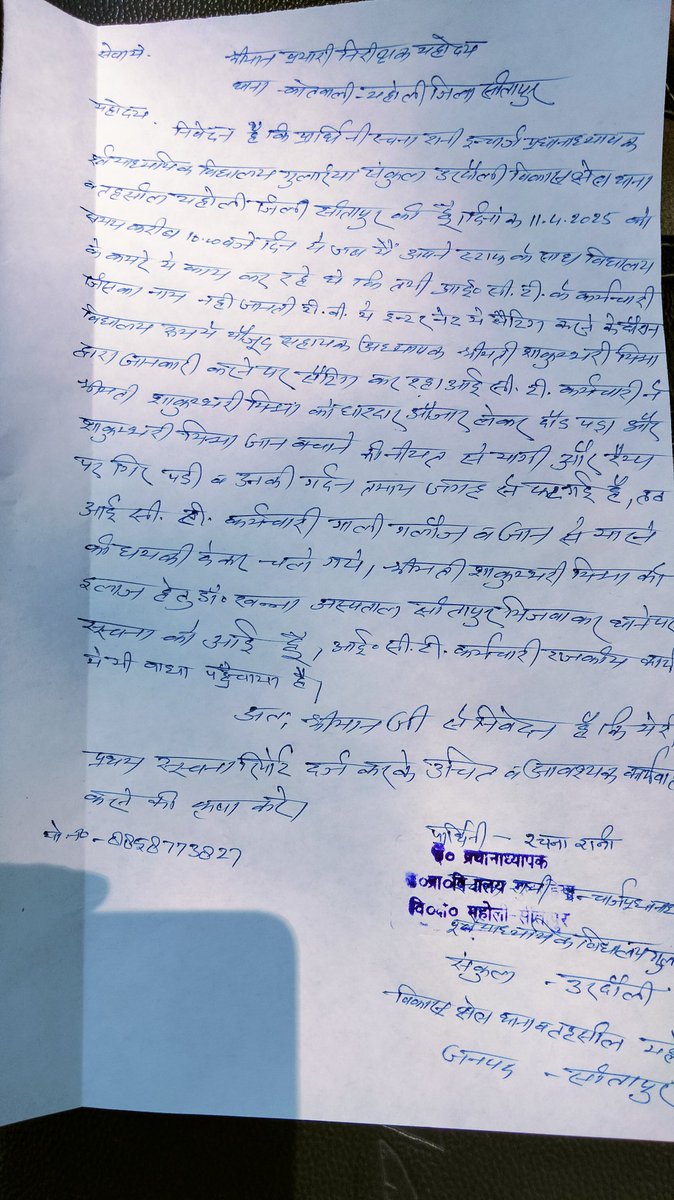 सेवामे.
श्रीमान प्रभारी निरीक्षक महोदय
थाना - कोतवाली - महोली जिला सीतापुर
महोदय.
निवेदन है कि प्रार्थिनी रचना रानी इन्चार्ज प्रधानाध्यापक
पूर्व माध्यमिक विद्यालय गुलरिया संकुल उरदौली विकास क्षेत्र थाना
व तहसील महोली जिला सीतापुर की है। दिनांक 11.4.2025 को
समय करीब 10:40 बजे दिन मे जब मैं अपने स्टाफ के साथ विद्यालय
के कमरे मे काम कर रहे थे कि तभी आई० सी. टी. के कर्मचारी
जिसका नाम नही जानती टी. वी. मे इन्टरनेट मे सैटिंग करने के दौरान
विद्यालय रूम मे मौजूद सहायक अध्यापक श्रीमती शाकुम्भरी मिश्रा
द्वारा जानकारी करने पर सैटिंग कर रहा आई सी. टी. कर्मचारी ने
श्रीमती शाकुम्भरी मिश्रा को धारदार औजार लेकर दौड पड़ा और
शाकुम्भरी मिश्रा जान बचाने की नीयत से भागी और रैम्प
पर गिर पडी व उनकी गर्दन तमाम जगह से फट गई है,
आई सी. टी. कर्मचारी गाली गलौज व जान से मारने
की धमकी देकर चले गये। श्रीमती शाकुम्भरी मिश्रा को
इलाज हेतु डॉ० खन्ना अस्पताल सीतापुर भिजवाकर थाने पर
सूचना को आई है, आई० सी. टी. कर्मचारी राजकीय कार्य
मे भी बाधा पहुँचाया है।
अतः श्रीमान जी से निवेदन है कि मेरी
प्रथम सूचना रिपोर्ट दर्ज करके उचित व आवश्यक कार्यवा
करने की कृपा करे।
मो.न० - 8858773827
प्रार्थिनी - रचना रानी
प्र० प्रधानाध्यापक
इन्चार्ज प्रधाना
वि०क्षे० महोली सीतापुर
पूर्व माध्यमिक विद्यालय गुल
संकुल - उरदौली
विकास क्षेत्र थाना व तहसील महो
जनपद - सीतापुर